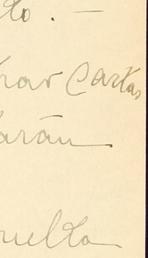 to. —
trar Cartas
arán
uelta